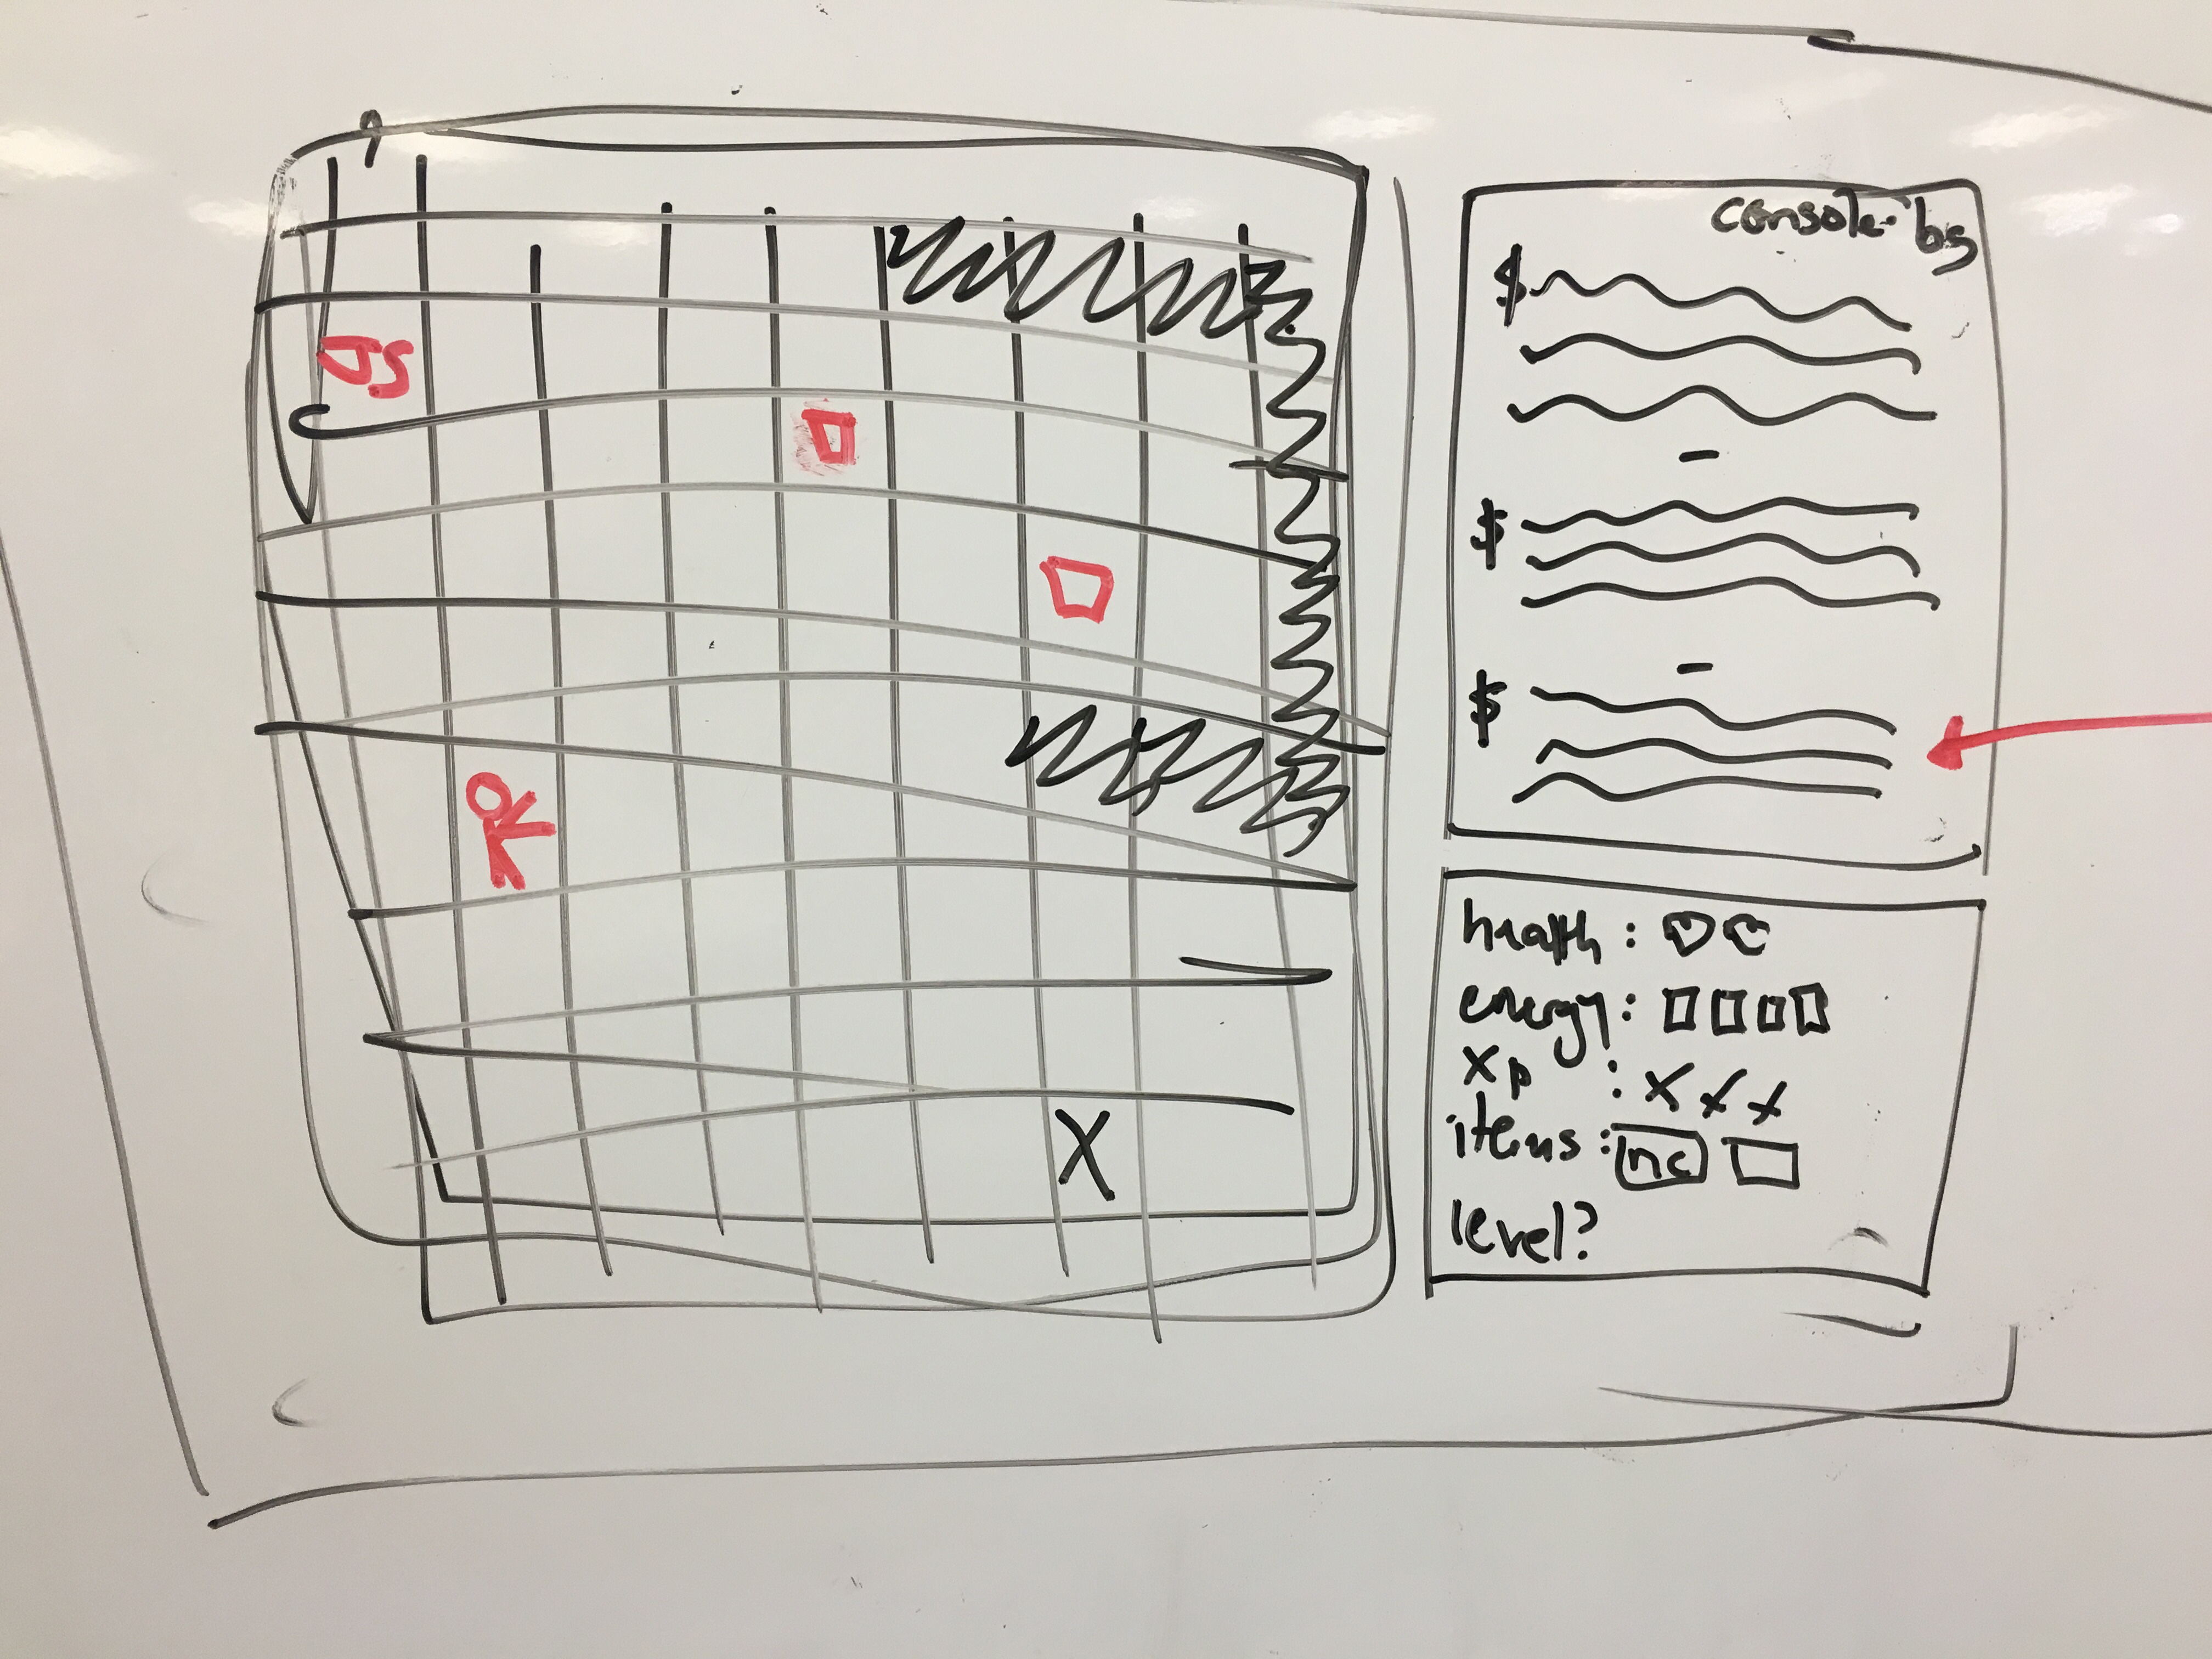 JS
X
console.bs
$
$
$
health :
energy :
xp : x x x
items : nc
level?